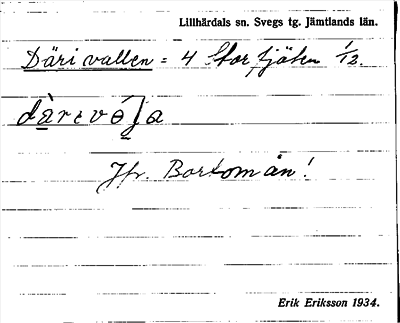 Lillhärdals sn. Svegs tg. Jämtlands län.
Därivallen = 4 Storfjäten 1/12.
Jfr. Bortomån!
Erik Eriksson 1934.